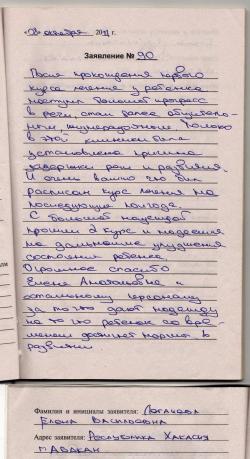 «08» октября 2011 г.
Заявление № 90
После прохождения первого
курса лечения у ребенка
наступил большой прогресс
в речи, стал более общитель-
ным, жизнерадостным. Только
в этой клинике была
установлена причина
задержки речи и развития.
И очень важно что был
расписан курс лечения на
последующие полгода.
С большой надеждой
прошли 2 курс и надеемся
на дальнейшие улучшения
состояния ребенка.
Огромное спасибо
Елене Анатольевне и
остальному персоналу
за то что дают надежду
на то что ребенок со вре-
менем догонит норму в
развитии
Фамилия и инициалы заявителя:
Елена Васильевна
Адрес заявителя: Республика Хакасия
г. Абакан